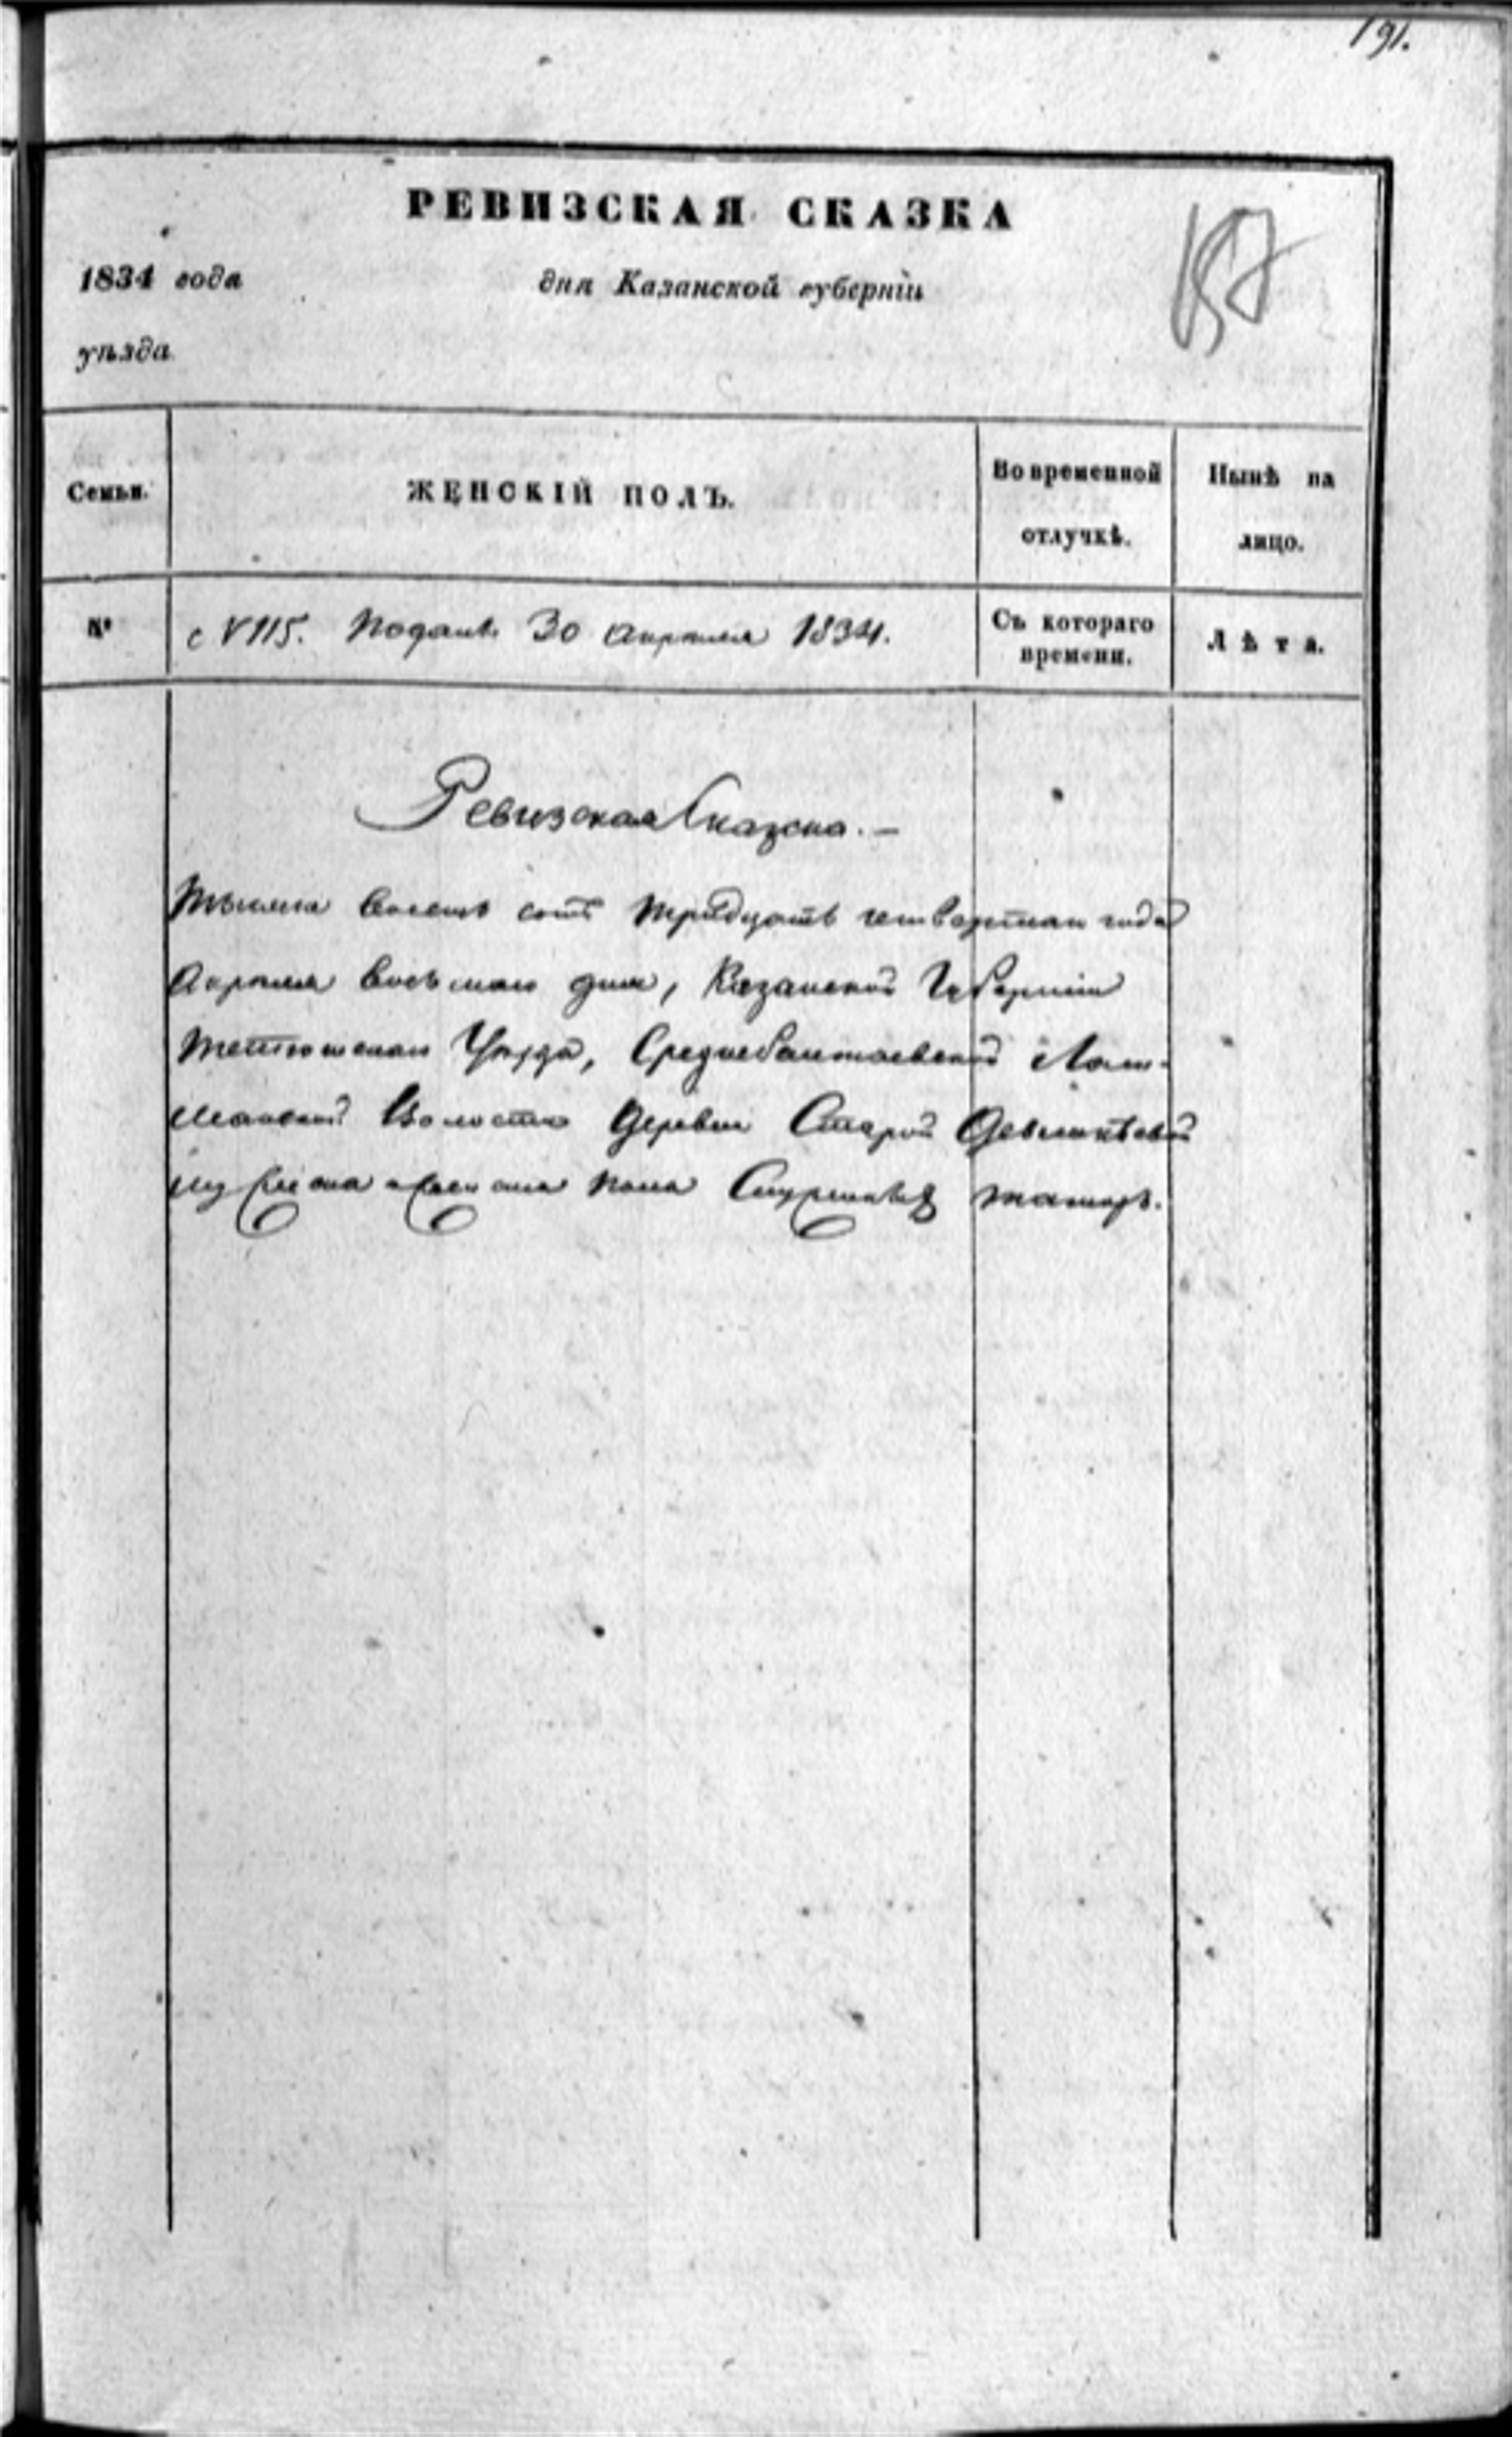 191.
РЕВИЗСКАЯ СКАЗКА
1834 года дня Казанской губерніи
уѣзда
Семьи. ЖЕНСКІЙ ПОЛЪ. Во временной отлучкѣ. Нынѣ на лицо.
№ 115. Подана 30 апрѣля 1834. Съ котораго времени. Лѣта.
Ревизская Сказка. —
Тысяча восемь сотъ тридцать четвертаго года
Апрѣля восьмаго дня, Казанской Губерніи
Тетюшскаго Уѣзда, Среднебалтаевской
Волости Деревни Старой
мужеска и женска пола татаръ.